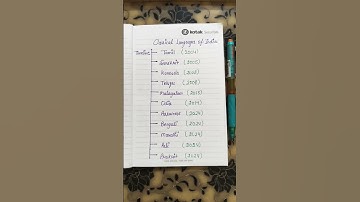 kotak
Classical Languages of India
Tamil (2004)
Sanskrit (2005)
Kannada (2008)
Telugu (2008)
Malayalam (2013)
Odia (2014)
Assamese (2024)
Bengali (2024)
Marathi (2024)
Pali (2024)
Prakrit (2024)